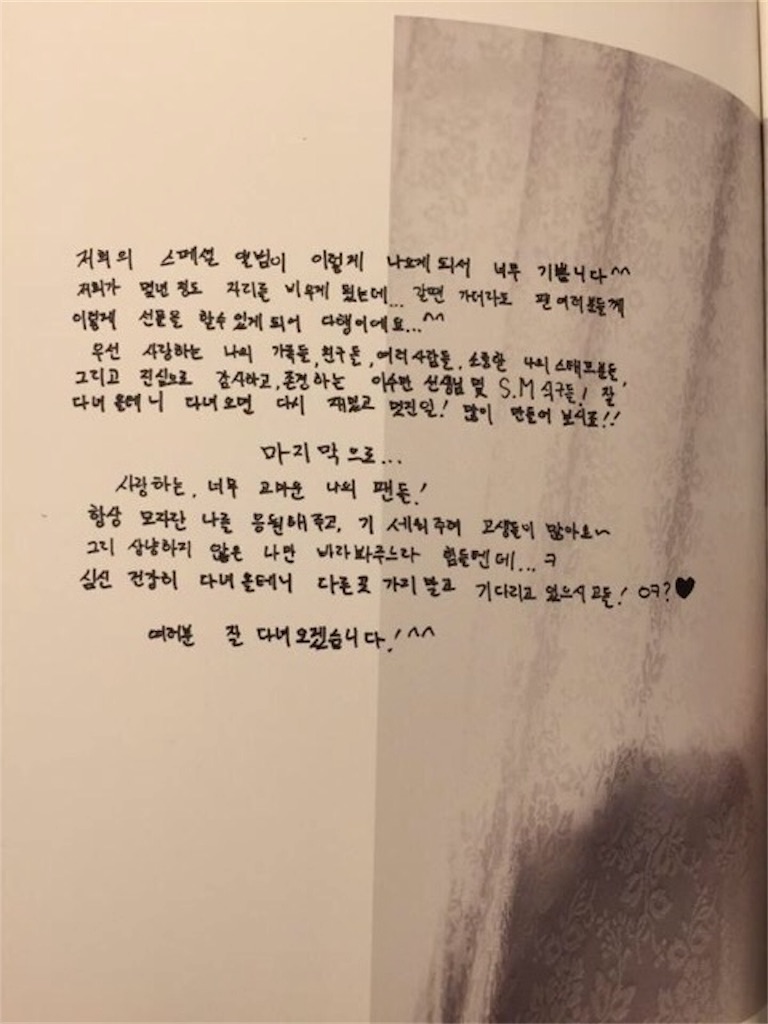 저희의 스페셜 앨범이 이렇게 나오게 되서 너무 기쁩니다^^
저희가 몇년 정도 자리를 비우게 됬는데... 갈땐 가더라도 팬 여러분들께
이렇게 선물을 할수 있게 되어 다행이에요...^^
우선 사랑하는 나의 가족들, 친구들, 여러 사람들, 소중한 나의 스태프분들,
그리고 진심으로 감사하고, 존경하는 이수만 선생님 및 S.M 식구들! 잘
다녀 올테니 다녀오면 다시 재밌고 멋진일! 많이 만들어 보시죠!!
마지막으로...
사랑하는, 너무 고마운 나의 팬들!
항상 모자란 나를 응원해주고, 기 세워주며 고생들이 많아요~
그리 상냥하지 않은 나만 바라봐주느라 힘들텐데...ㅋ
심신 건강히 다녀올테니 다른곳 가지말고 기다리고 있으시고들! 야?♥
여러분 잘 다녀오겠습니다!^^